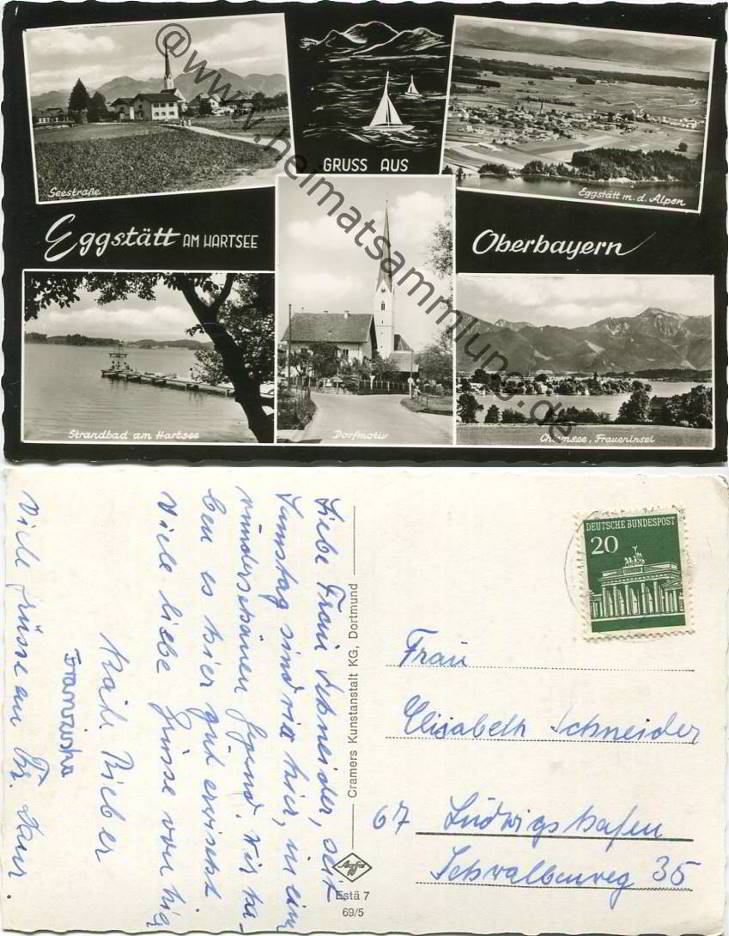 GRUSS AUS
Seestraße
Eggstätt m. d. Alpen
Eggstätt AM HARTSEE
Oberbayern
Strandbad am Hartsee
Dorfmotiv
Chiemsee, Fraueninsel
@www.heimatsammlung.de
Liebe Frau Schneider, seit
Samstag sind wir hier, in einer
wunderschönen Gegend. Wir ha-
ben es hier gut erwischt.
Viele liebe Grüsse von hier
Käti Rieber
Franziska
Viele Grüsse an Fr.
Cramers Kunstanstalt KG, Dortmund
Agfa
Estä 7
69/5
DEUTSCHE BUNDESPOST
20
Frau
Elisabeth Schneider
67 Ludwigshafen
Schwalbenweg 35